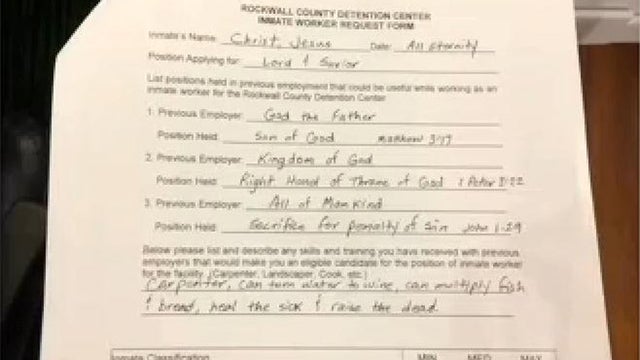 ROCKWALL COUNTY DETENTION CENTER
INMATE WORKER REQUEST FORM
Inmate's Name: Christ, Jesus Date: All Eternity
Position Applying for: Lord & Savior
List positions held in previous employment that could be useful while working as an
inmate worker for the Rockwall County Detention Center
1. Previous Employer: God the Father
Position Held: Son of God Matthew 3:17
2. Previous Employer: Kingdom of God
Position Held: Right Hand of Throne of God 1 Peter 3:22
3. Previous Employer: All of Mankind
Position Held: Sacrifice for penalty of sin John 1:29
Below please list and describe any skills and training you have received with previous
employers that would make you an eligible candidate for the position of inmate worker
for the facility. (Carpenter, Landscaper, Cook, etc.)
Carpenter, can turn water to wine, can multiply fish
& bread, heal the sick & raise the dead.
Inmate Classification MIN MED MAX